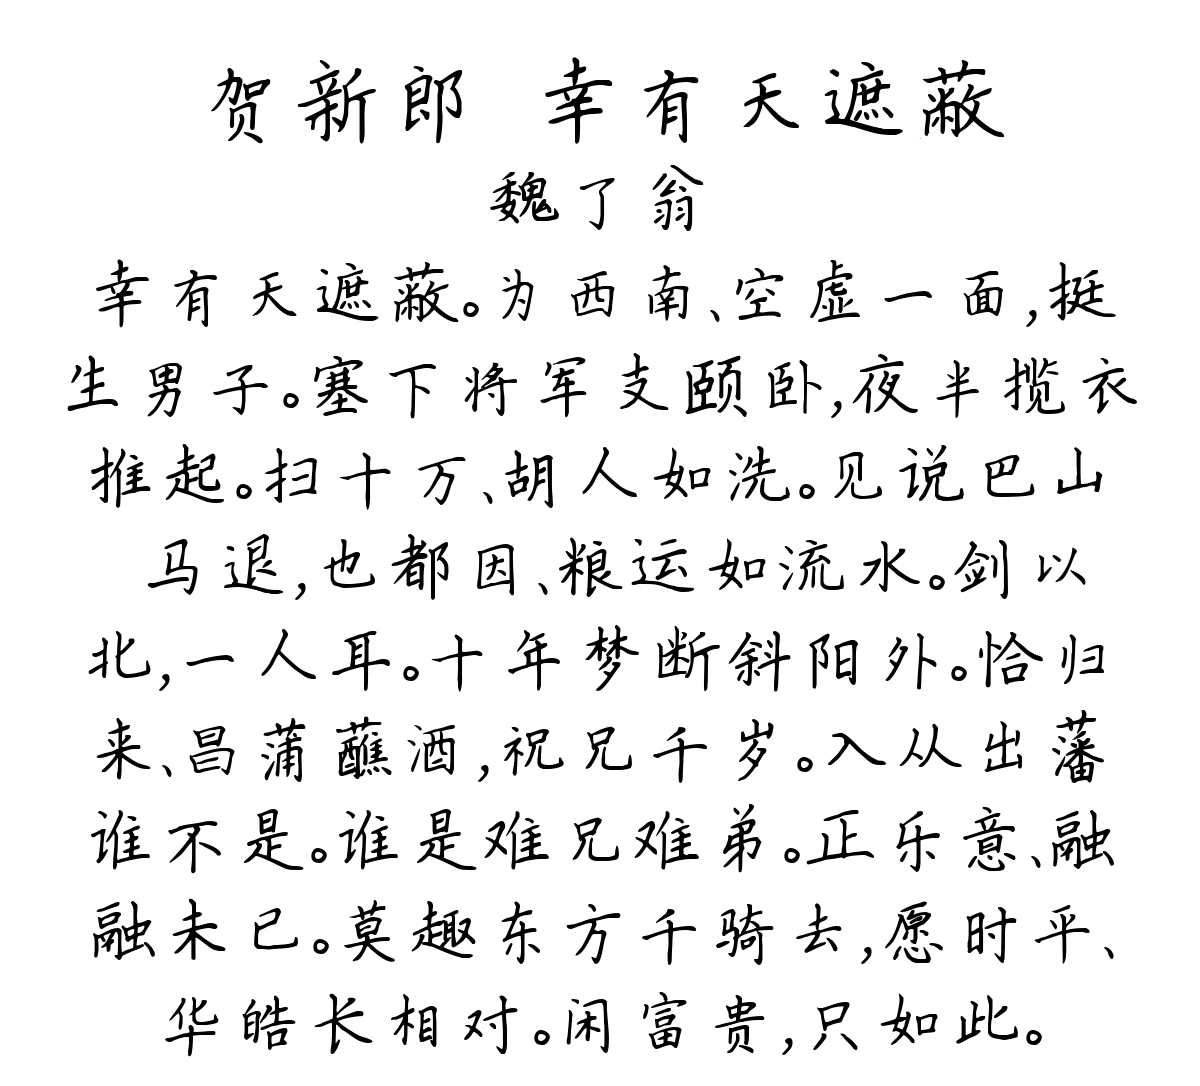 贺新郎 幸有天遮蔽
魏了翁
幸有天遮蔽。为西南、空虚一面,挺
生男子。塞下将军支颐卧,夜半揽衣
推起。扫十万、胡人如洗。见说巴山
马退,也都因、粮运如流水。剑以
北,一人耳。十年梦断斜阳外。恰归
来、昌蒲蘸酒,祝兄千岁。入从出藩
谁不是。谁是难兄难弟。正乐意、融
融未已。莫趣东方千骑去,愿时平、
华皓长相对。闲富贵,只如此。